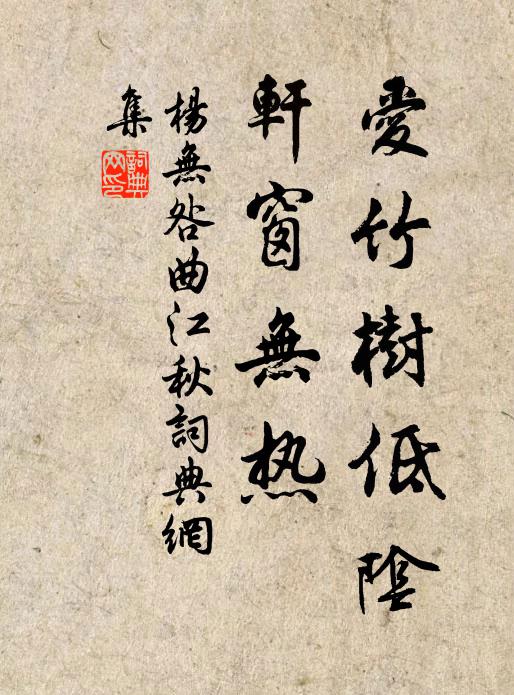 愛竹樹低陰
軒窗無热
楊無咎曲江秋詞典網
集
詞典網印